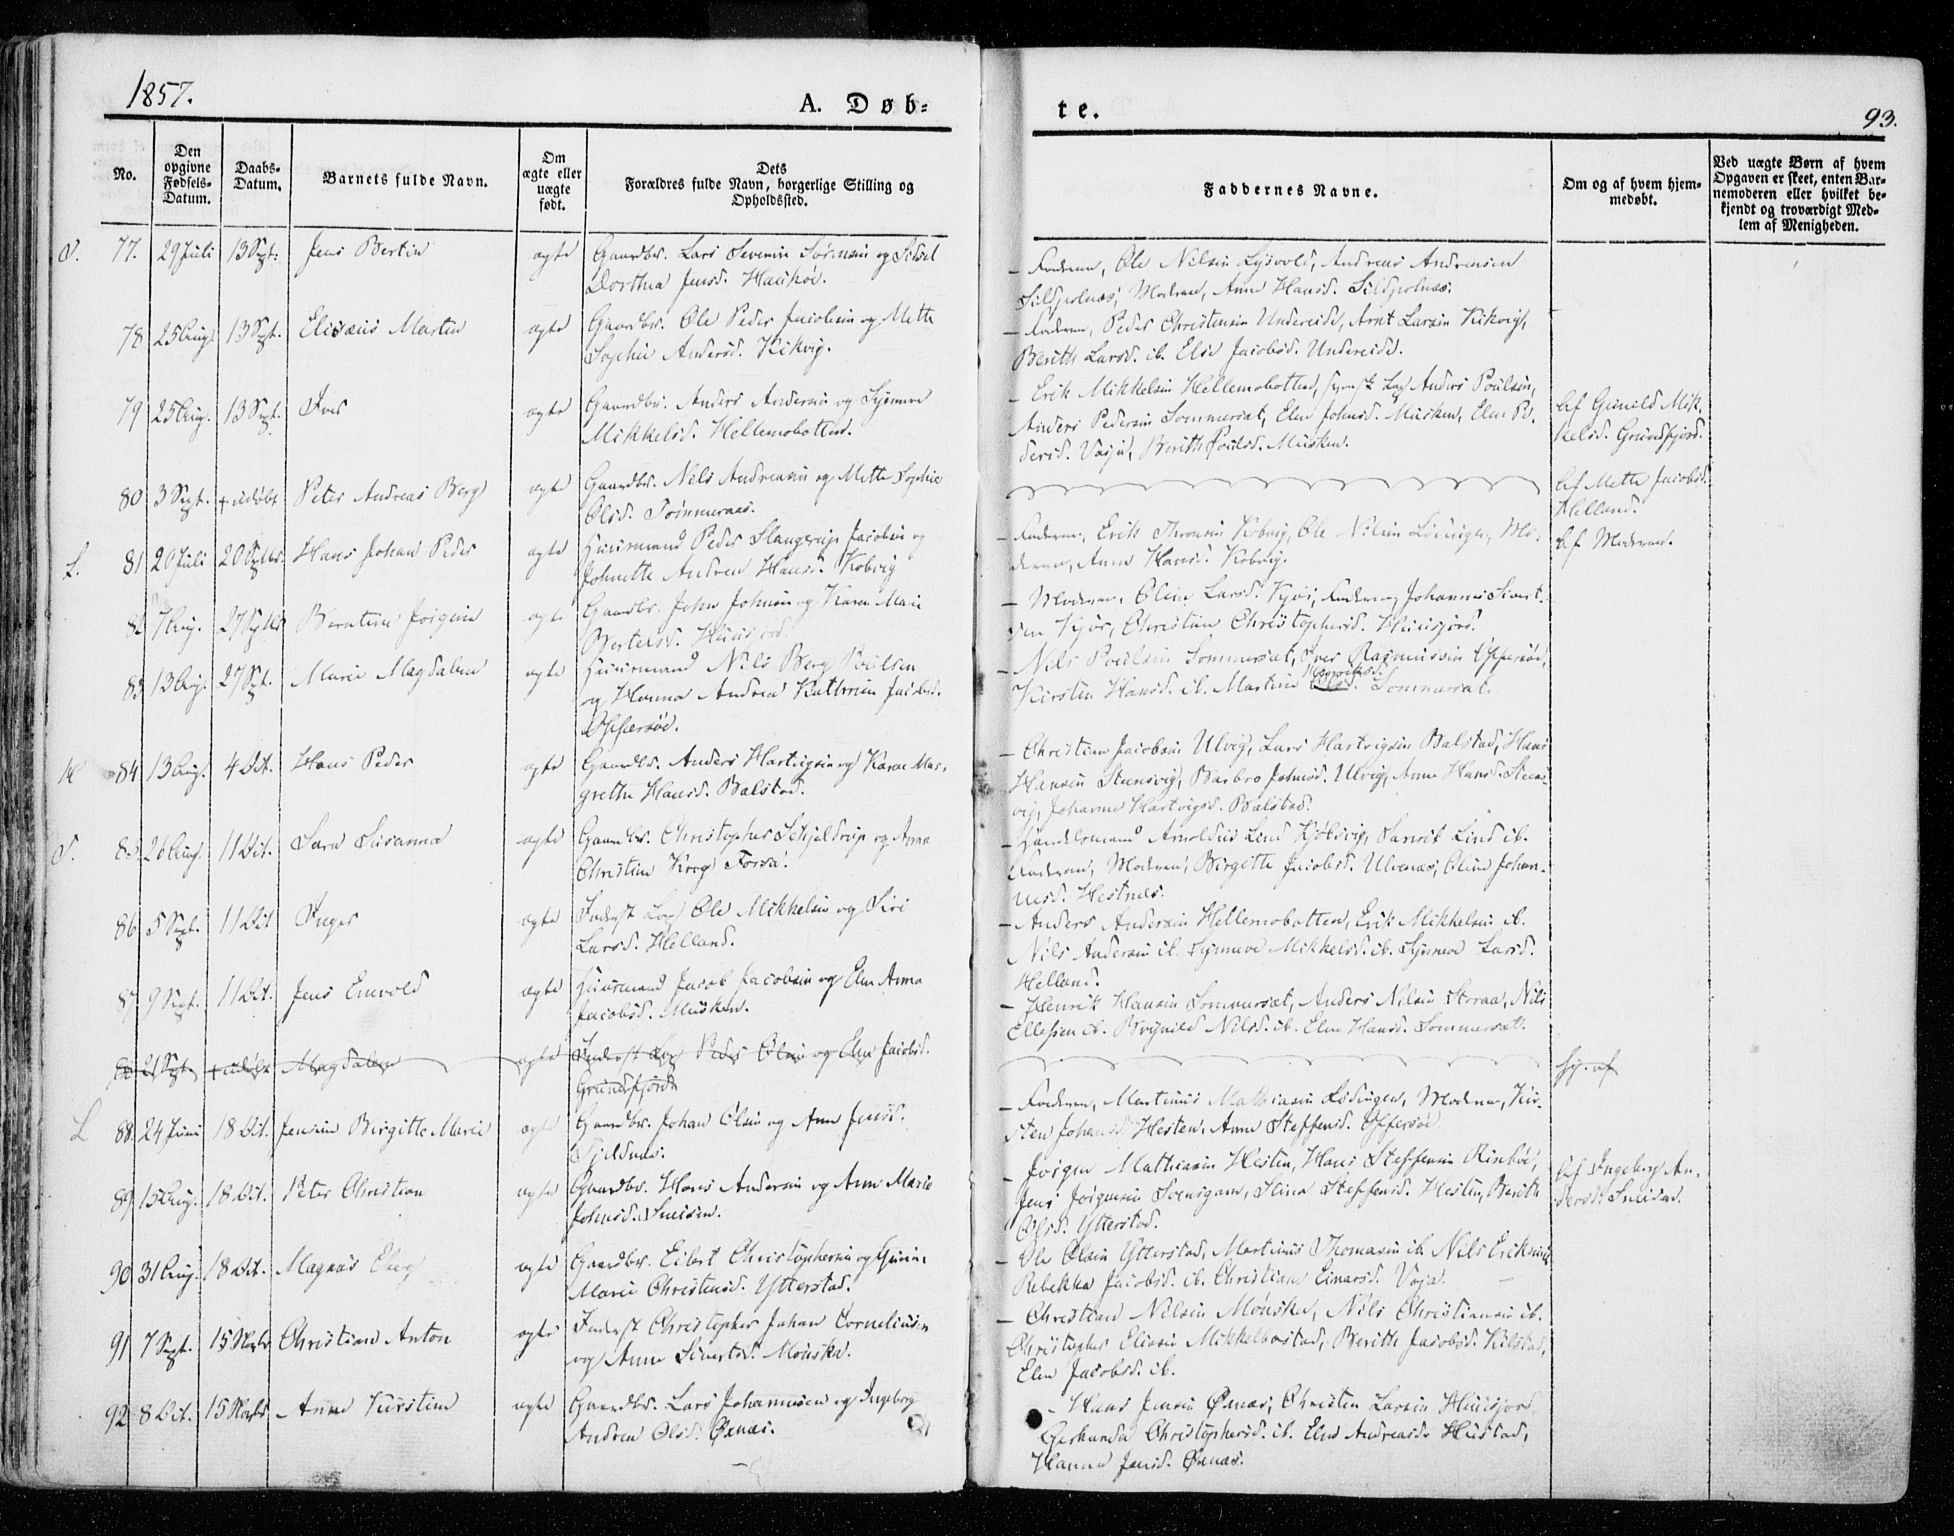 1857.
A. Døb=
te.
93.
No.
Den opgivne Fødsels-Datum.
Daabs-Datum.
Barnets fulde Navn.
Om ægte eller uægte født.
Dets Forældres fulde Navn, borgerlige Stilling og Opholdssted.
Faddernes Navne.
Om og af hvem hjem-medøbt.
Ved uægte Børn af hvem Opgaven er skeet, enten Bar-nemoderen eller hvilket be-kjendt og troværdigt Med-lem af Menigheden.
77. 29 Juli 13 Sept. Jens Bertin ægte Gaardbr. Lars Severin Sørensen og Sidsel
Dorthea Jensd. Haukøe.
- Faderen, Ole Nilsen Lysvold, Andreas Andreasen
Sildpolnæs, Moderen, Anne Hansd. Sildpolnæs.
78 25 Aug. 13 Sept. Elisæus Martin ægte Gaardbr. Ole Peder Jacobsen og Mette
Sophie Andersd. Kikvig.
- Faderen, Peder Christensen Undereidet, Arnt Larsen Kikvig,
Berith Larsd. ib. Else Jacobsd. Undereidet.
79 25 Aug. 13 Sept. Iver ægte Gaardbr. Anders Andersen og Synneve
Mikkelsd. Hellemobotten.
- Erik Mikkelsen Hellemobotten, svensk Lap Anders Poulsen,
Anders Pedersen Sommersæt, Elen Johnsd. Musken, Elen Pe-
dersd. Vasja, Berith Poulsd. Musken.
Af Gunild Mik-
kelsd. Grundfjord.
80 3 Sept. + udøbt Peter Andreas Berg ægte Gaardbr. Nils Andreasen og Mette Sophie
Olsd. Tømmeraas.
Af Mette Jacobsd.
Helland.
L. 81 20 Juli 20 Septbr. Hans Johan Peder ægte Huusmand Peder Slangerup Jacobsen og
Johnette Andrea Hansd. Kobvig
- Faderen, Erik Thronsen Kobvig, Ole Nilsen Lødingen, Mo-
deren, Anne Hansd. Kobvig.
Af Moderen.
82 7 Aug. 27 Septbr Berntine Jørgine ægte Gaardbr. John Johnsen og Karen Marie
Bertelsd. Huusjord.
- Moderen, Oline Larsd. Kjøs, Faderen, Johannes Sivert-
sen Kjøs, Christine Christophersd. Huusjord.
83 13 Aug. 27 Sept. Marie Magdalene ægte Huusmand Nils Berg Poulsen
og Hanna Andrea Kathrine Jacobsd.
Offersøe.
- Nils Poulsen Sommersæt, Iver Rasmussen Offersøe,
Kirsten Hansd. ib. Martine Henriksd. Sommersæt.
84 13 Aug. 4 Oct. Hans Peder ægte Gaardbr. Anders Hartvigsen og Karen Mar-
grethe Hansd. Balstad.
- Christian Jacobsen Ulvig, Lars Hartvigsen Balstad, Hans
Hansen Steensvig, Barbro Johnsd. Ulvig, Anne Hansd. Steens-
vig, Johanna Hartvigsd. Balstad.
85 26 Aug. 11 Oct. Sara Susanna ægte Gaardbr. Christopher Schjelderup og Anna
Christine Krog Forsa.
- Handelsmand Arnoldus Lind Kjøbsvig, Lind ib.
Faderen, Moderen, Birgitte Jacobsd. Ulvenæs, Oline Johan-
nesd. Hestnæs.
86 5 Sept. 11 Oct Inger ægte Inderst Lap Ole Mikkelsen og Siri
Larsd. Helland.
- Anders Andersen Hellemobotten, Erik Mikkelsen ib.
Nils Andersen ib. Synneve Mikkelsd. ib. Synneve Larsd.
Helland.
87 9 Sept. 11 Oct. Jens Enevold ægte Huusmand Jacob Jacobsen og Elen Anna
Jacobsd. Musken.
- Henrik Hansen Sommersæt, Anders Nilsen Storaa, Nils
Ellefsen ib. Brynild Nilsd. ib. Elen Hansd. Sommersæt.
21 Sept. + udøbt Magdalena ægte Inderst Lap Peder Olsen og Elen Jacobsd.
Grundfjord
Hj. af
L 88. 24 Juni 18 Oct. Jensine Birgitte Marie ægte Gaardbr. Johan Olsen og Ane Jensd.
Tjeldnæs.
- Faderen, Martinus Mathiasen Lødingen, Moderen, Kir-
sten Johansd. Hesten, Anne Steffensd. Offersøe
89 15 Aug. 18 Oct. Peter Christian ægte Gaardbr. Hans Andersen og Ane Marie
Johnsd. Sneisen.
- Jørgen Mathiasen Hesten, Hans Steffensen Rinbøe,
Jens Jørgensen Svensgam, Stina Steffensd. Hesten, Berith
Olsd. Ytterstad.
Af Ingeborg An-
dersd. Sneisen.
90 31 Aug. 18 Oct. Magnus Eberg ægte Gaardbr. Eilert Christophersen og
Marie Christensd. Ytterstad.
- Ole Olsen Ytterstad, Martinus Thomasen ib. Nils Eriksen ib.
Rebekka Jacobsd. ib. Christiane Einarsd. Voja.
91 7 Sept. 15 Novbr Christian Anton ægte Inderst Christopher Johan Corneliusen
og Anne Sivertsd. Mønsket.
- Christian Nilsen Mønsket, Nils Christiansen ib.
Christopher Eliasen Mikkelbostad, Berith Jacobsd. Kilstad,
Elen Jacobsd. ib.
92 8 Oct. 15 Novbr Anne Kirstine ægte Gaardbr. Lars Johannesen og Ingeborg
Andrea Olsd. Øxnæs.
- Hans Jensen Øxnæs, Christen Larsen Huusjord,
Christophersd. ib. Else Andreasd. Hustad,
Hanna Jensd. Øxnæs.